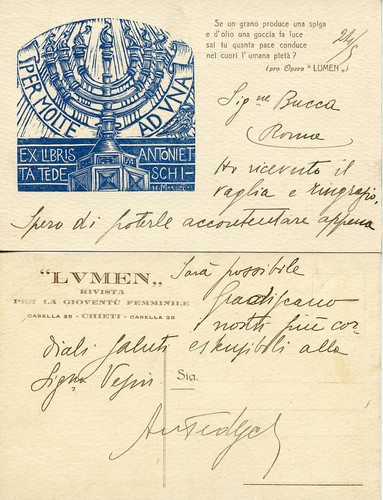 PER MOLTE AD VNA
EX LIBRIS ANTONIET
TA TEDE SCHI-
Se un grano produce una spiga
e d'olio una goccia fa luce
sai tu quanta pace conduce
nel cuori l'umana pietà?
(pro Opera "LUMEN„)
Sig.ne Bucca
Rome
Ho ricevuto il
vaglia e ringrazio,
Spero di poterle accontentare appena
"LVMEN„
RIVISTA
PER LA GIOVENTÙ FEMMINILE
CASELLA 28 - CHIETI - CASELLA 28
Sarà possibile
Gradiscano
nostri più cor
diali saluti
alla
Sig.na
Sig.